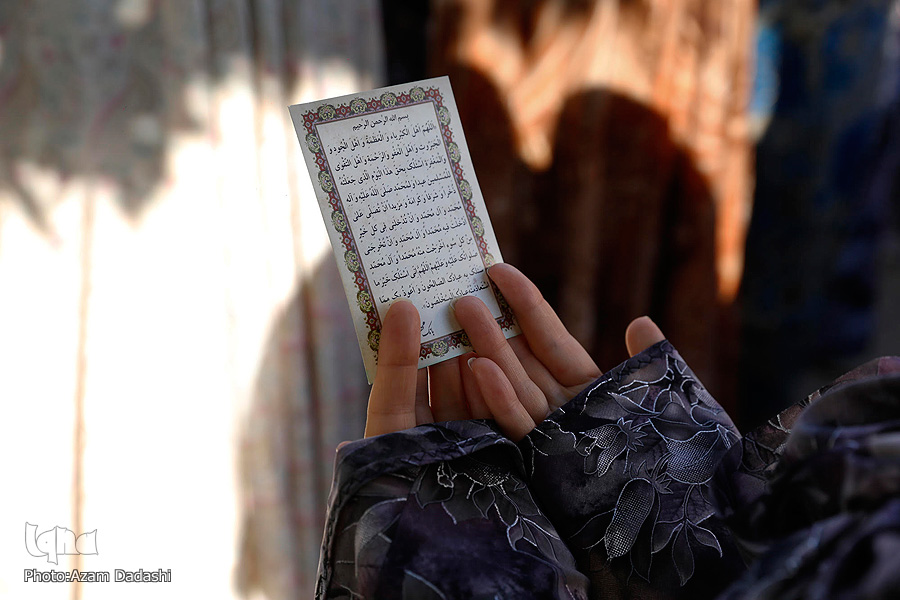 بسم الله الرحمن الرحیم
اَللّهُمَّ اَهْلَ الْكِبْرِیاءِ وَ الْعَظَمَةِ وَ اَهْلَ الْجُودِ وَ
الْجَبَرُوتِ وَ اَهْلَ الْعَفْوِ وَ الرَّحْمَةِ وَ اَهْلَ التَّقْوى
وَ الْمَغْفِرَةِ اَسْئَلُكَ بِحَقِّ هذَا الْیَوْمِ الَّذى جَعَلْتَهُ
لِلْمُسْلِمینَ عیداً وَ لِمُحَمَّدٍ صَلَّى اللهُ عَلَیْهِ وَ آلِهِ
ذُخْراً وَ شَرَفاً وَ كَرامَةً وَ مَزیداً اَنْ تُصَلِّىَ عَلى
مُحَمَّدٍ وَ آلِ مُحَمَّدٍ وَ اَنْ تُدْخِلَنى فى كُلِّ خَیْرٍ
اَدْخَلْتَ فیهِ مُحَمَّداً وَ آلَ مُحَمَّدٍ وَ اَنْ تُخْرِجَنى
مِنْ كُلِّ سُوءٍ اَخْرَجْتَ مِنْهُ مُحَمَّداً وَ آلَ مُحَمَّدٍ
صَلَواتُكَ عَلَیْهِ وَ عَلَیْهِمْ اَللّهُمَّ اِنّى اَسْئَلُكَ خَیْرَ ما
سَئَلَكَ بِهِ عِبادُكَ الصّالِحُونَ وَ اَعُوذُ بِكَ مِمَّا
اسْتَعاذَ مِنْهُ عِبادُكَ الْمُخْلَصُونَ
Iqna
Photo:Azam Dadashi